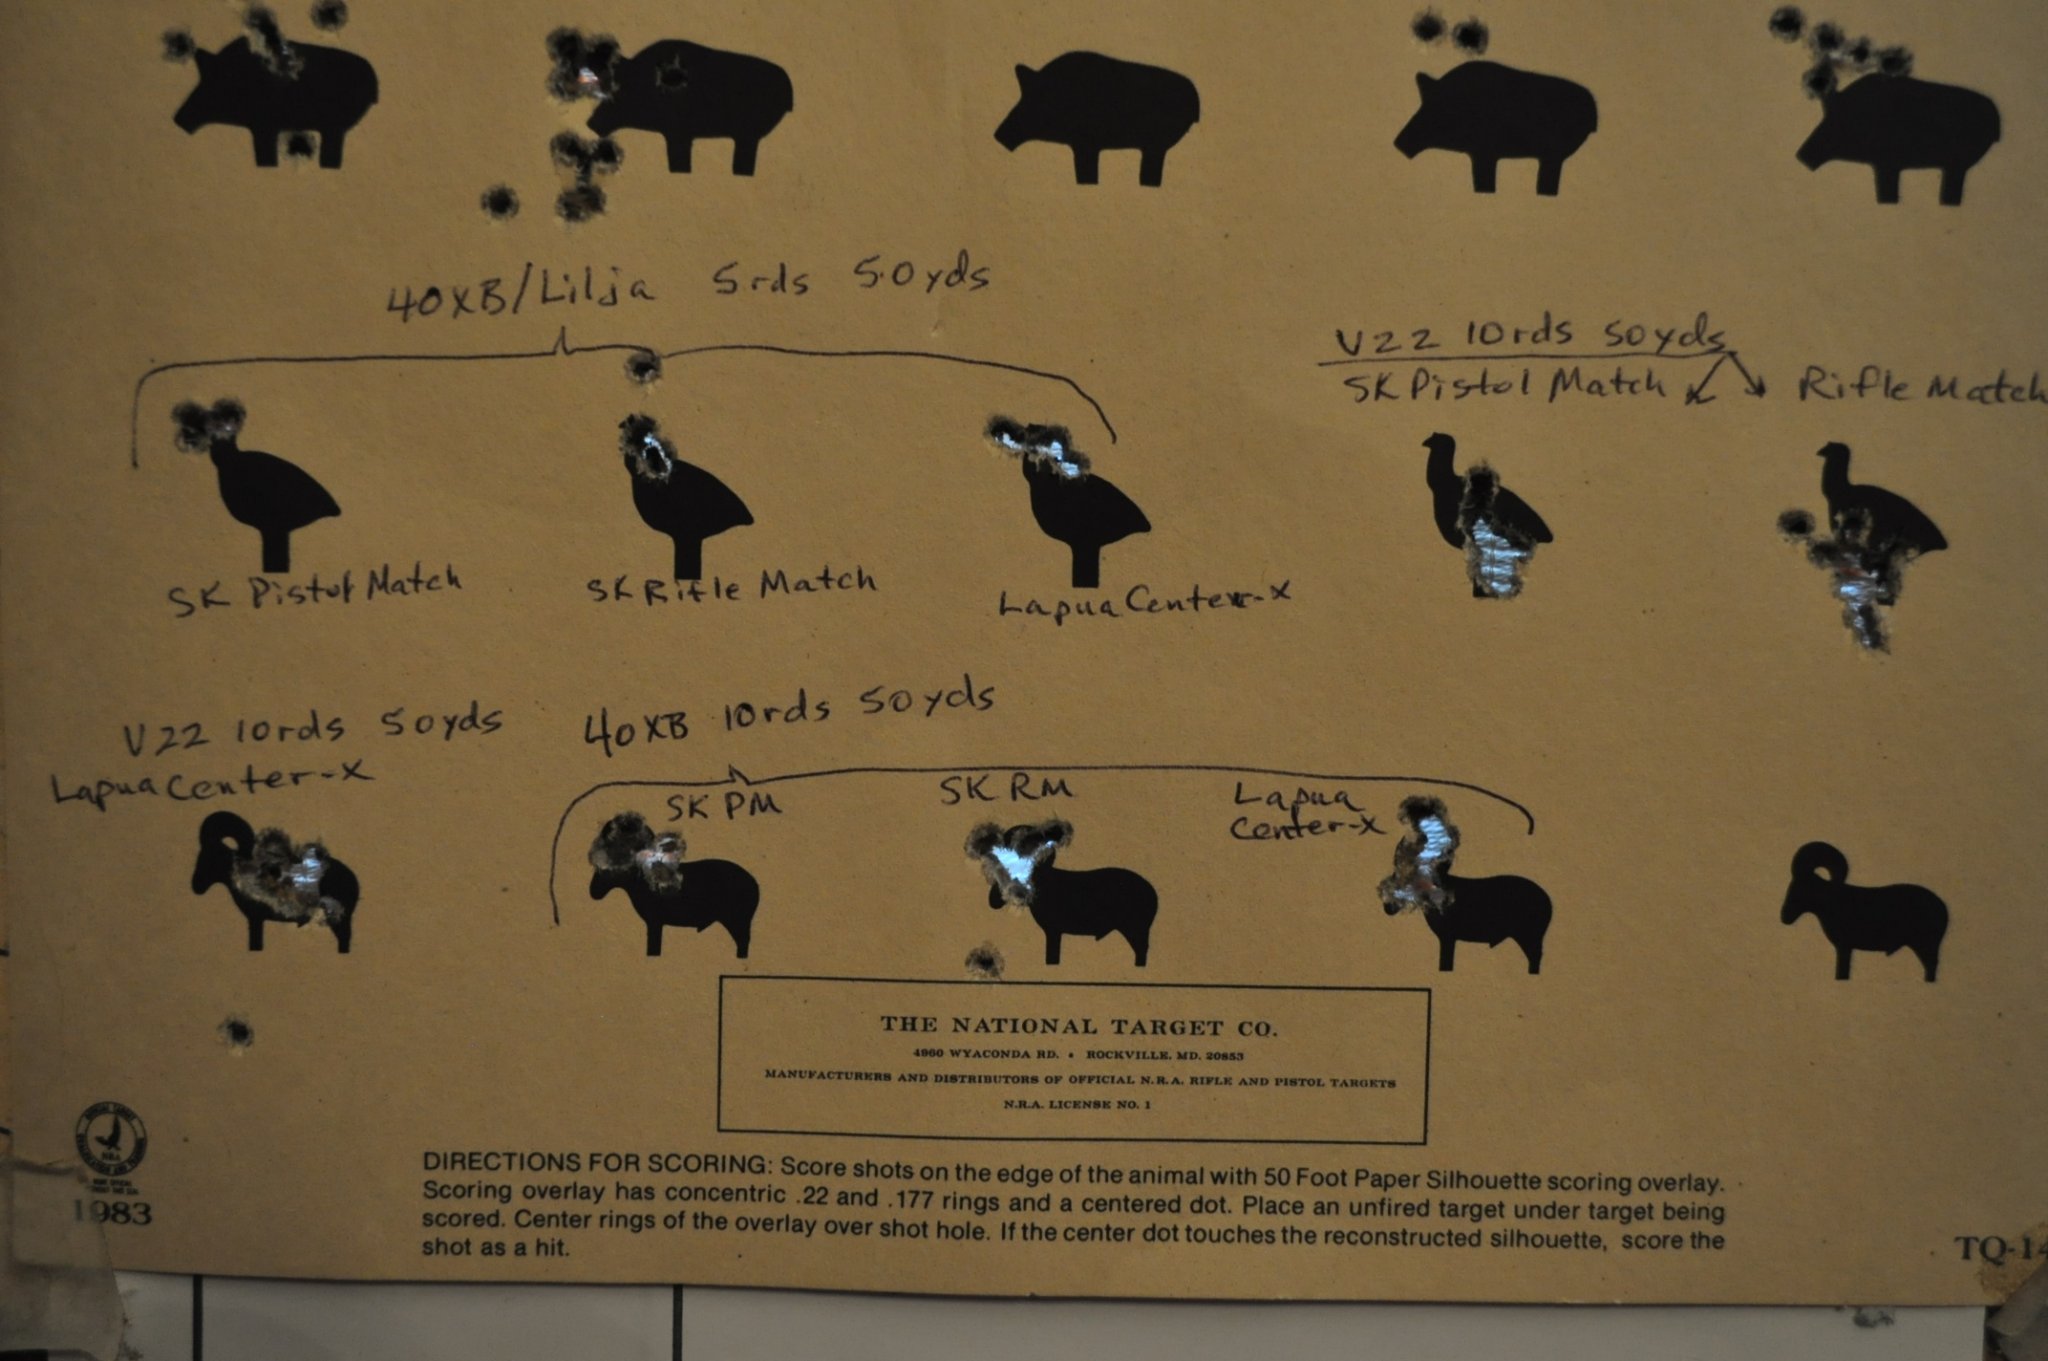 40XB/Lilja 5rds 50yds
V22 10rds 50yds
SK Pistol Match Rifle Match
SK Pistol Match
SK Rifle Match
Lapua Center-X
V22 10rds 50yds
Lapua Center-X
40XB 10rds 50yds
SK PM
SK RM
Lapua
Center-X
THE NATIONAL TARGET CO.
4960 WYACONDA RD. • ROCKVILLE, MD. 20853
MANUFACTURERS AND DISTRIBUTORS OF OFFICIAL N.R.A. RIFLE AND PISTOL TARGETS
N.R.A. LICENSE NO. 1
NRA
1983
DIRECTIONS FOR SCORING: Score shots on the edge of the animal with 50 Foot Paper Silhouette scoring overlay.
Scoring overlay has concentric .22 and .177 rings and a centered dot. Place an unfired target under target being
scored. Center rings of the overlay over shot hole. If the center dot touches the reconstructed silhouette, score the
shot as a hit.
TQ-14